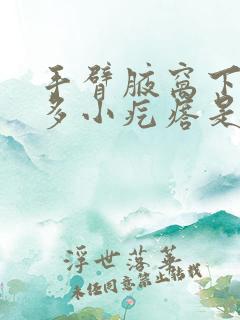 手臂腋窝下
多小疙瘩是
浮世落英
未经同意禁止转载